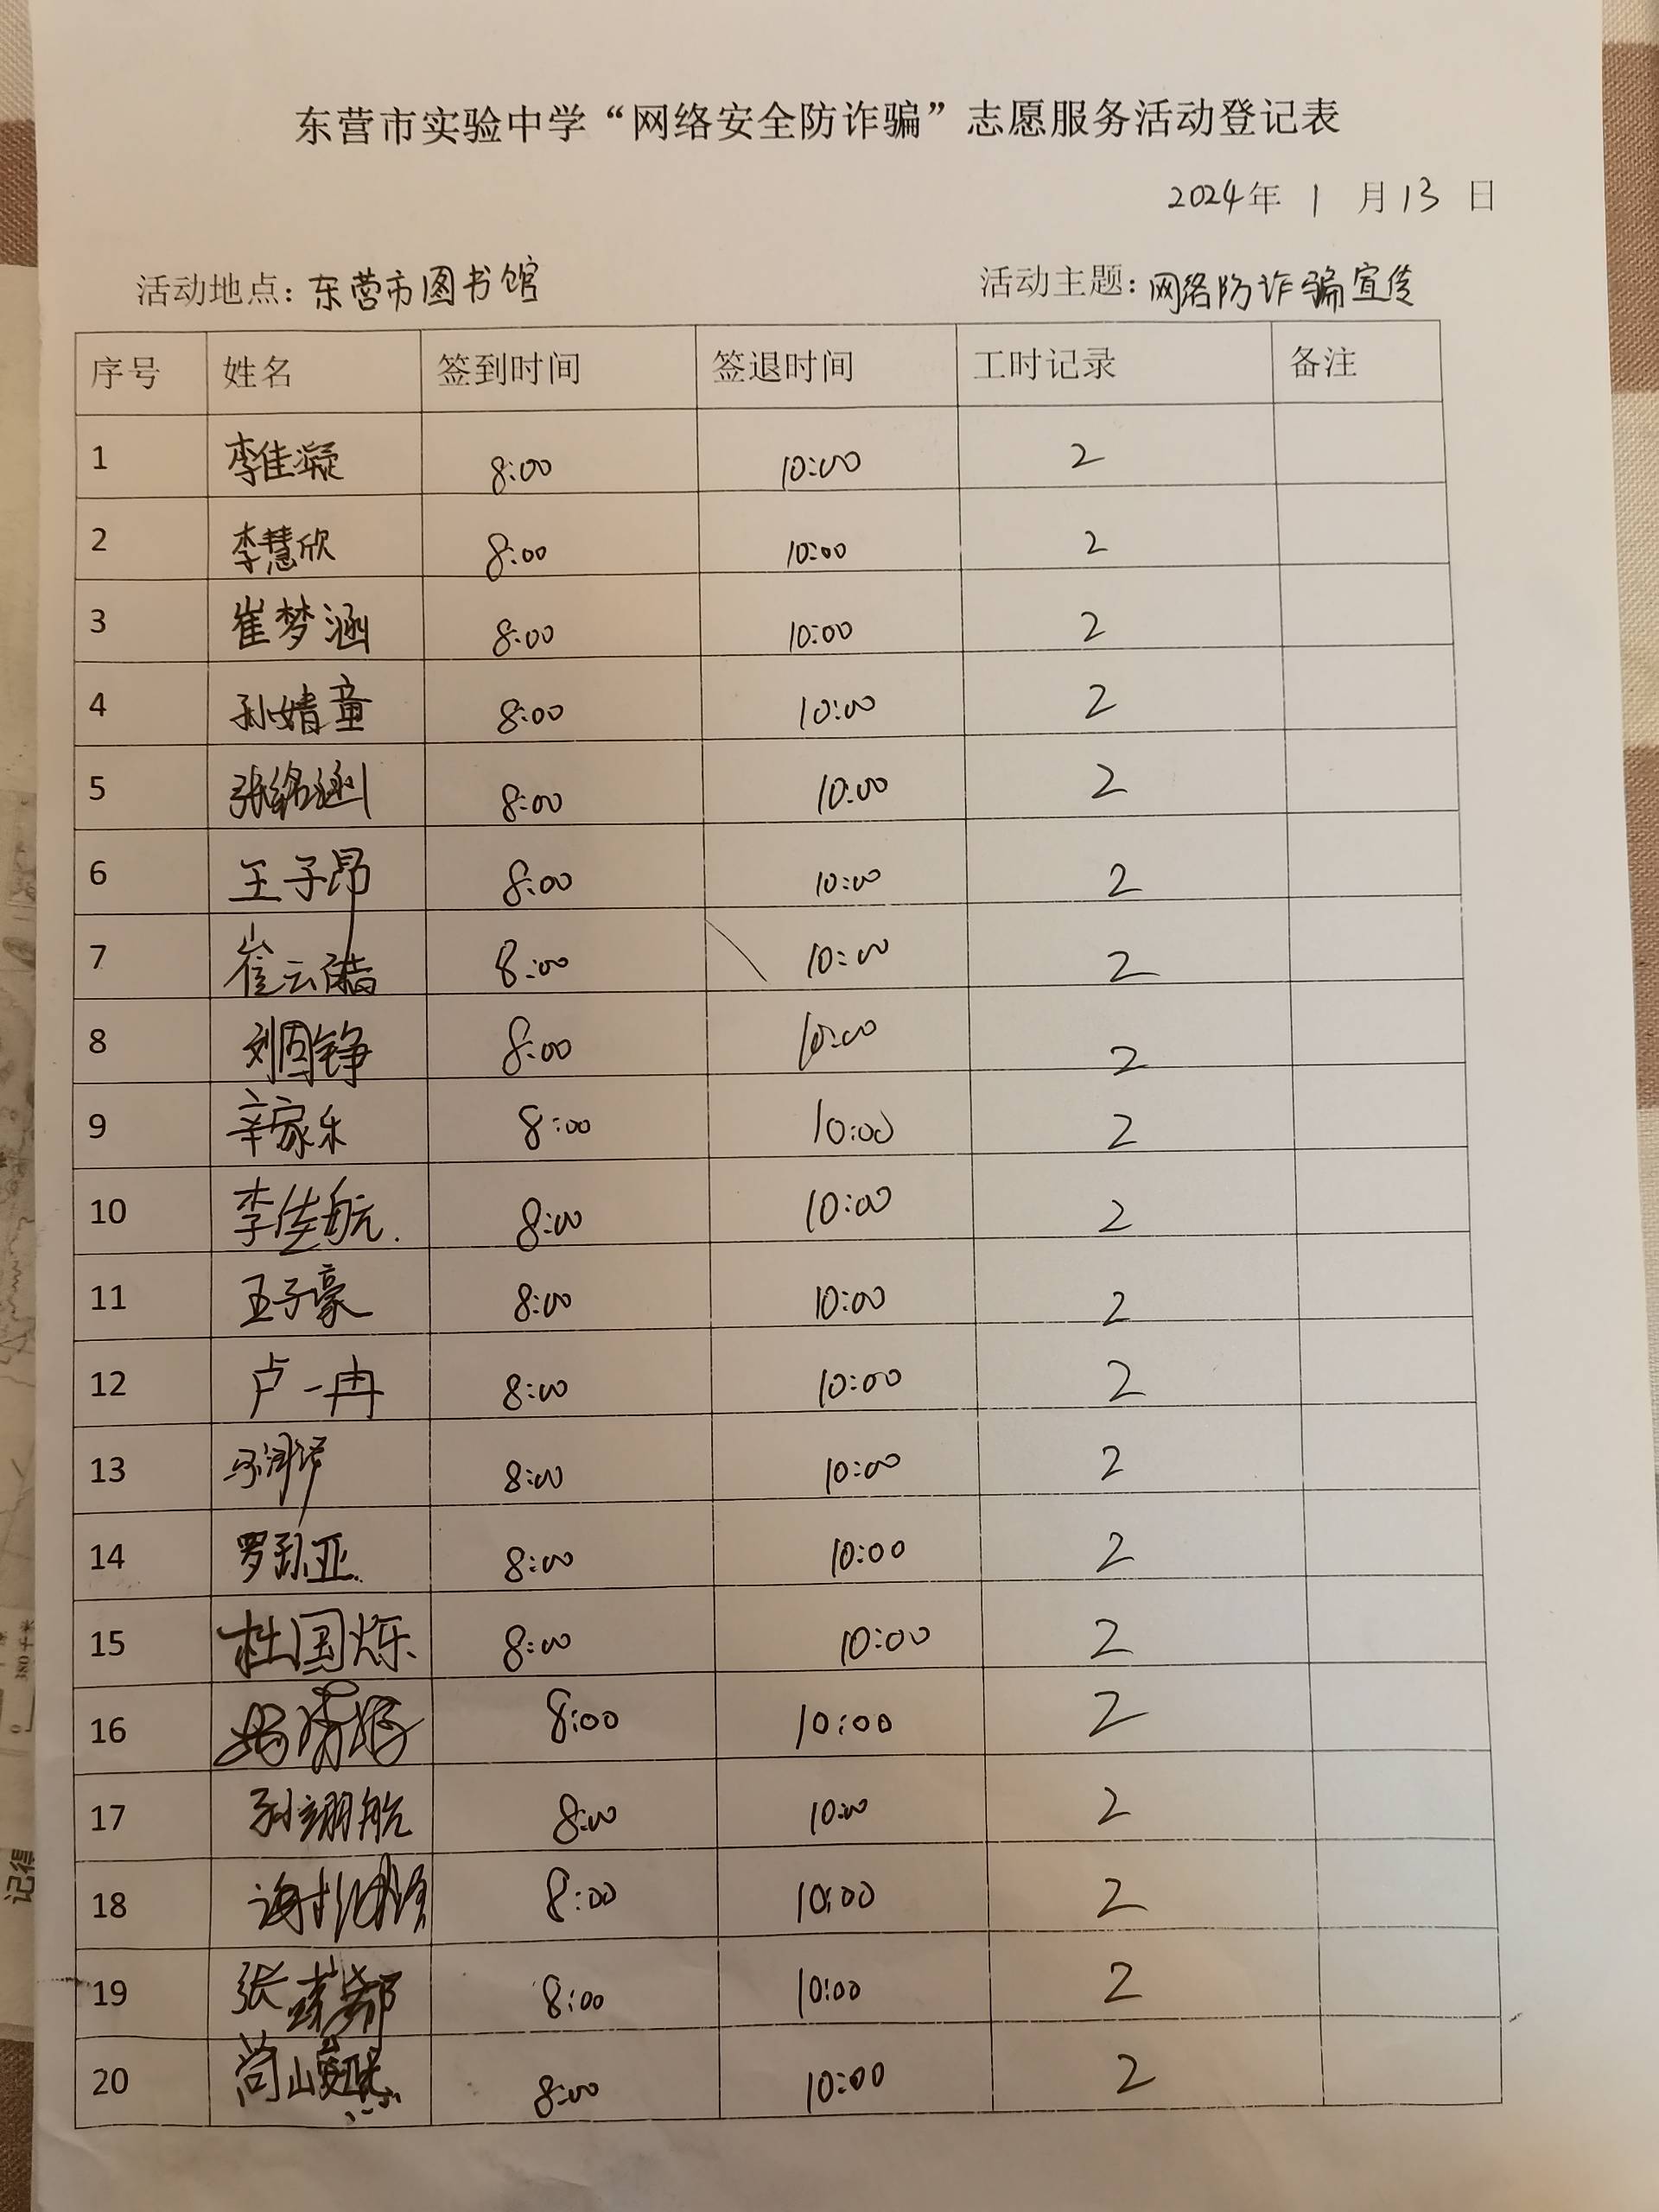 东营市实验中学“网络安全防诈骗”志愿服务活动登记表
2024年 1 月13 日
活动地点：东营市图书馆 活动主题：网络防诈骗宣传
序号 姓名 签到时间 签退时间 工时记录 备注
1 李佳凝 8:00 10:00 2
2 李慧欣 8:00 10:00 2
3 崔梦涵 8:00 10:00 2
4 孙婧童 8:00 10:00 2
5 张铭涵 8:00 10:00 2
6 王子昂 8:00 10:00 2
7 崔云 8:00 10:00 2
8 刘国铮 8:00 10:00 2
9 辛家乐 8:00 10:00 2
10 李佳航. 8:00 10:00 2
11 王子豪 8:00 10:00 2
12 卢一冉 8:00 10:00 2
13 8:00 10:00 2
14 罗 亚 8:00 10:00 2
15 杜国烁 8:00 10:00 2
16 8:00 10:00 2
17 孙翊航 8:00 10:00 2
18 谢 8:00 10:00 2
19 张 8:00 10:00 2
20 8:00 10:00 2
记得